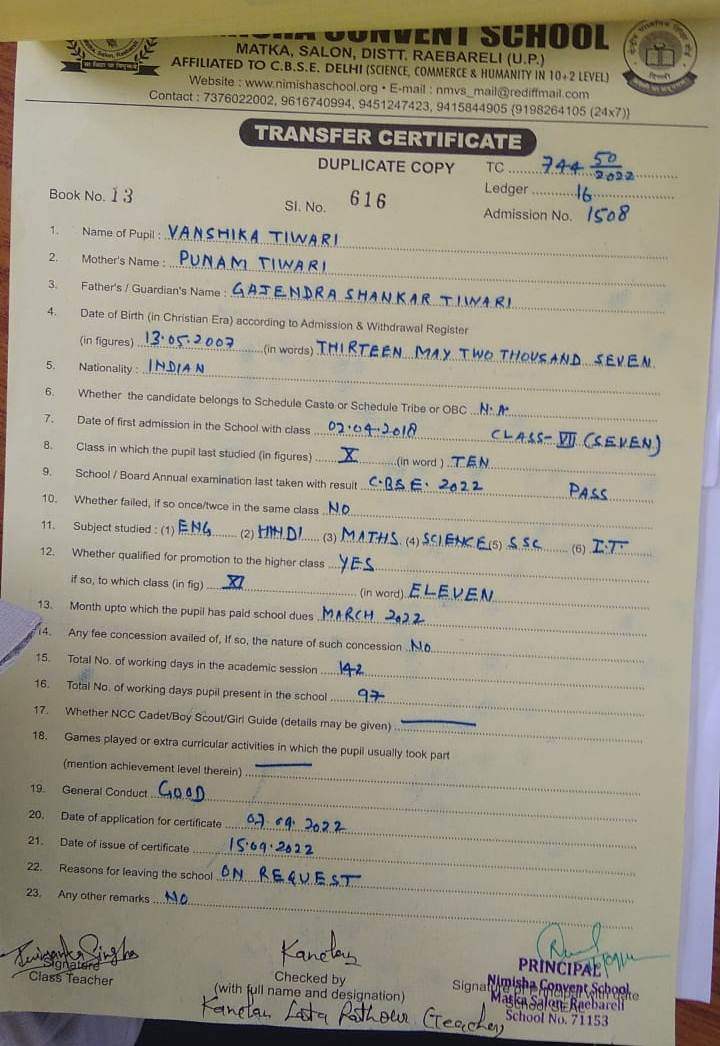 CONVENT SCHOOL
MATKA, SALON, DISTT. RAEBARELI (U.P.)
AFFILIATED TO C.B.S.E. DELHI (SCIENCE, COMMERCE & HUMANITY IN 10+2 LEVEL)
Website : www.nimishaschool.org • E-mail : nmvs_mail@rediffmail.com
Contact : 7376022002, 9616740994, 9451247423, 9415844905 {9198264105 (24x7)}
TRANSFER CERTIFICATE
DUPLICATE COPY TC 744 50/2022
Book No. 13 Sl. No. 616 Ledger 16
Admission No. 1508
1. Name of Pupil : VANSHIKA TIWARI
2. Mother's Name : PUNAM TIWARI
3. Father's / Guardian's Name : GAJENDRA SHANKAR TIWARI
4. Date of Birth (in Christian Era) according to Admission & Withdrawal Register
(in figures) 13.05.2007 (in words) THIRTEEN MAY TWO THOUSAND SEVEN
5. Nationality : INDIAN
6. Whether the candidate belongs to Schedule Caste or Schedule Tribe or OBC N.A
7. Date of first admission in the School with class 02.04.2018 CLASS-VII (SEVEN)
8. Class in which the pupil last studied (in figures) X (in word ) TEN
9. School / Board Annual examination last taken with result C.B.S.E. 2022 PASS
10. Whether failed, if so once/twce in the same class NO
11. Subject studied : (1) ENG (2) HINDI (3) MATHS (4) SCIENCE (5) SSC (6) I.T.
12. Whether qualified for promotion to the higher class YES
if so, to which class (in fig) XI (in word) ELEVEN
13. Month upto which the pupil has paid school dues MARCH 2022
14. Any fee concession availed of, If so, the nature of such concession NO
15. Total No. of working days in the academic session 142
16. Total No. of working days pupil present in the school 97
17. Whether NCC Cadet/Boy Scout/Girl Guide (details may be given)
18. Games played or extra curricular activities in which the pupil usually took part
(mention achievement level therein)
19. General Conduct GOOD
20. Date of application for certificate 07.09.2022
21. Date of issue of certificate 15.09.2022
22. Reasons for leaving the school ON REQUEST
23. Any other remarks NO
Signature
Class Teacher
Checked by
(with full name and designation)
Kanchan Lata Rathour (Teacher)
PRINCIPAL
Nimisha Convent School
Matka Salon, Raebareli
School No. 71153